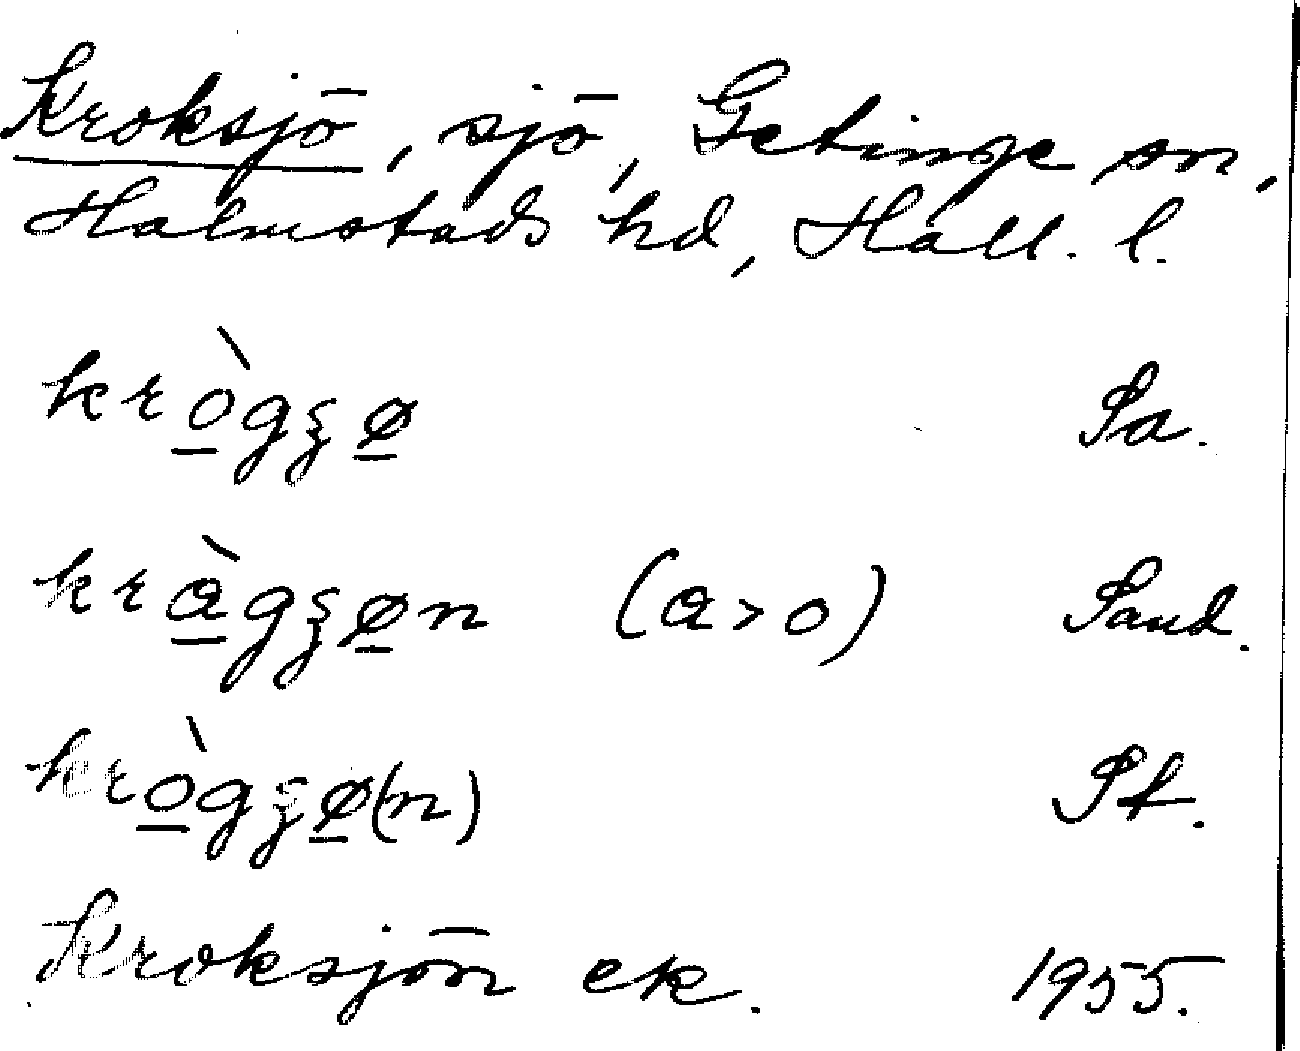 Kroksjö, sjö, Getinge sn,
Halmstads hd, Hall. l.
krògʒø Sa.
kràgʒøn (a>o) Sand.
krògʒø(n) Pf.
Kroksjön ek. 1955.